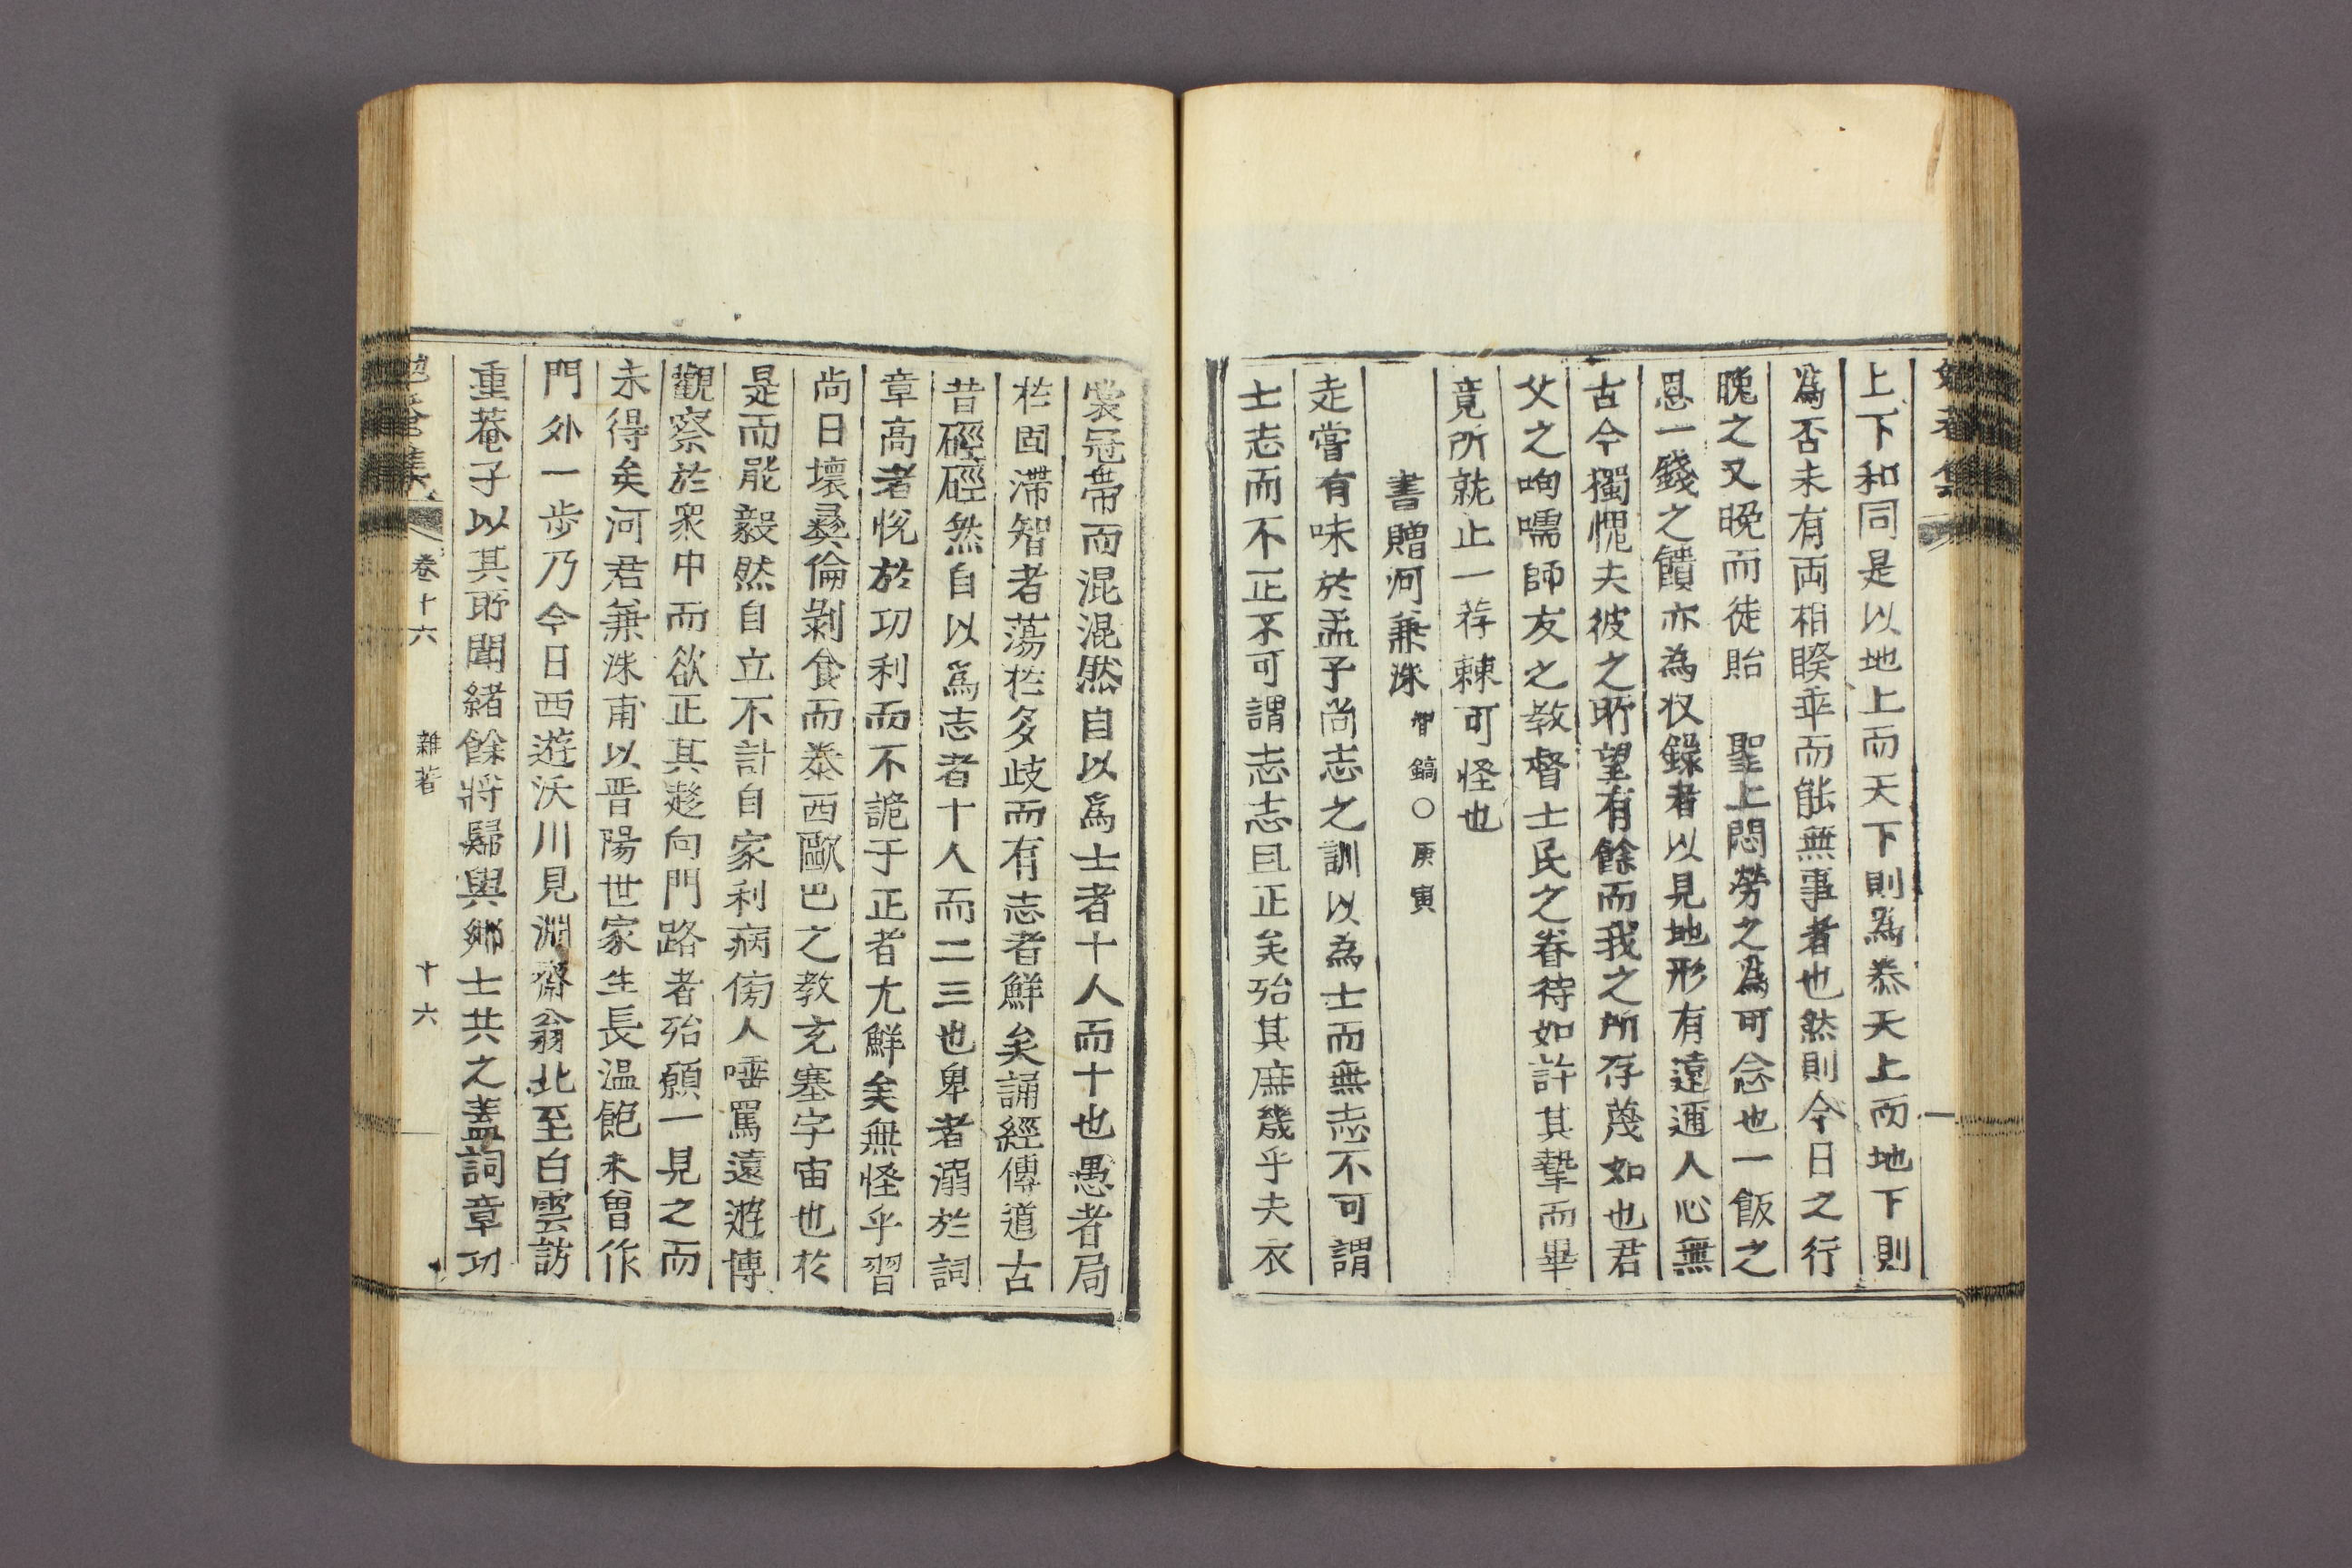 勉菴集
上下和同是以地上而天下則爲泰天上而地下則
爲否未有両相睽乖而能無事者也然則今日之行
晚之又晚而徒貽　聖上悶勞之爲可念也一飯之
恩一錢之饋亦為收錄者以見地形有遠通人心無
古今獨愧夫彼之所望有餘而我之所存蔑如也君
父之呴嚅師友之教督士民之眷待如許其摯而畢
竟所就止一荐棘可怪也
書贈河兼洙
鎬○庚寅
走嘗有味於孟子尚志之訓以為士而無志不可謂
士志而不正不可謂志志且正矣殆其庶幾乎夫衣
裳冠帶而混混然自以爲士者十人而十也愚者局
於固滯智者蕩於多歧而有志者鮮矣誦經傳道古
昔硜硜然自以爲志者十人而二三也卑者溺於詞
章高者悅於功利而不詭于正者尤鮮矣無怪乎習
尚日壞彝倫剝食而泰西歐巴之教充塞宇宙也於
是而能毅然自立不計自家利病傍人唾罵遠遊博
觀察於衆中而欲正其趍向門路者殆願一見之而
未得矣河君兼洙甫以晋陽世家生長溫飽未曾作
門外一步乃今日西遊沃川見淵齋翁北至白雲訪
重菴子以其所聞緖餘將歸與鄉士共之蓋詞章功
勉菴集
卷十六
雜著
十六